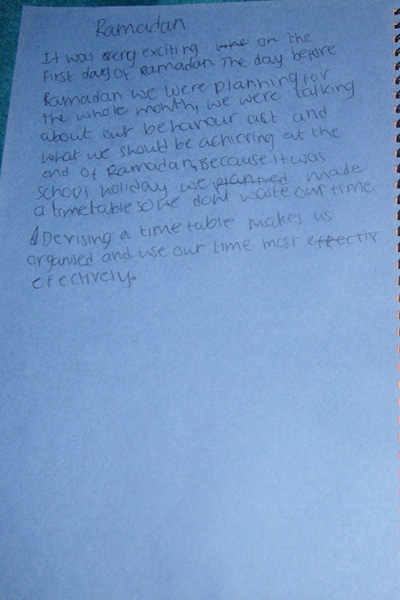 Ramadan
It was very exciting on the
first day of Ramadan The day before
Ramadan we were planning for
the whole month, we were talking
about our behaviour act and
what we should be achieving at the
end of Ramadan, Because it was
school holiday we planned made
a timetable so we dont waste our time.
Devising a time table makes us
organised and use our time most effectiv
efectively.